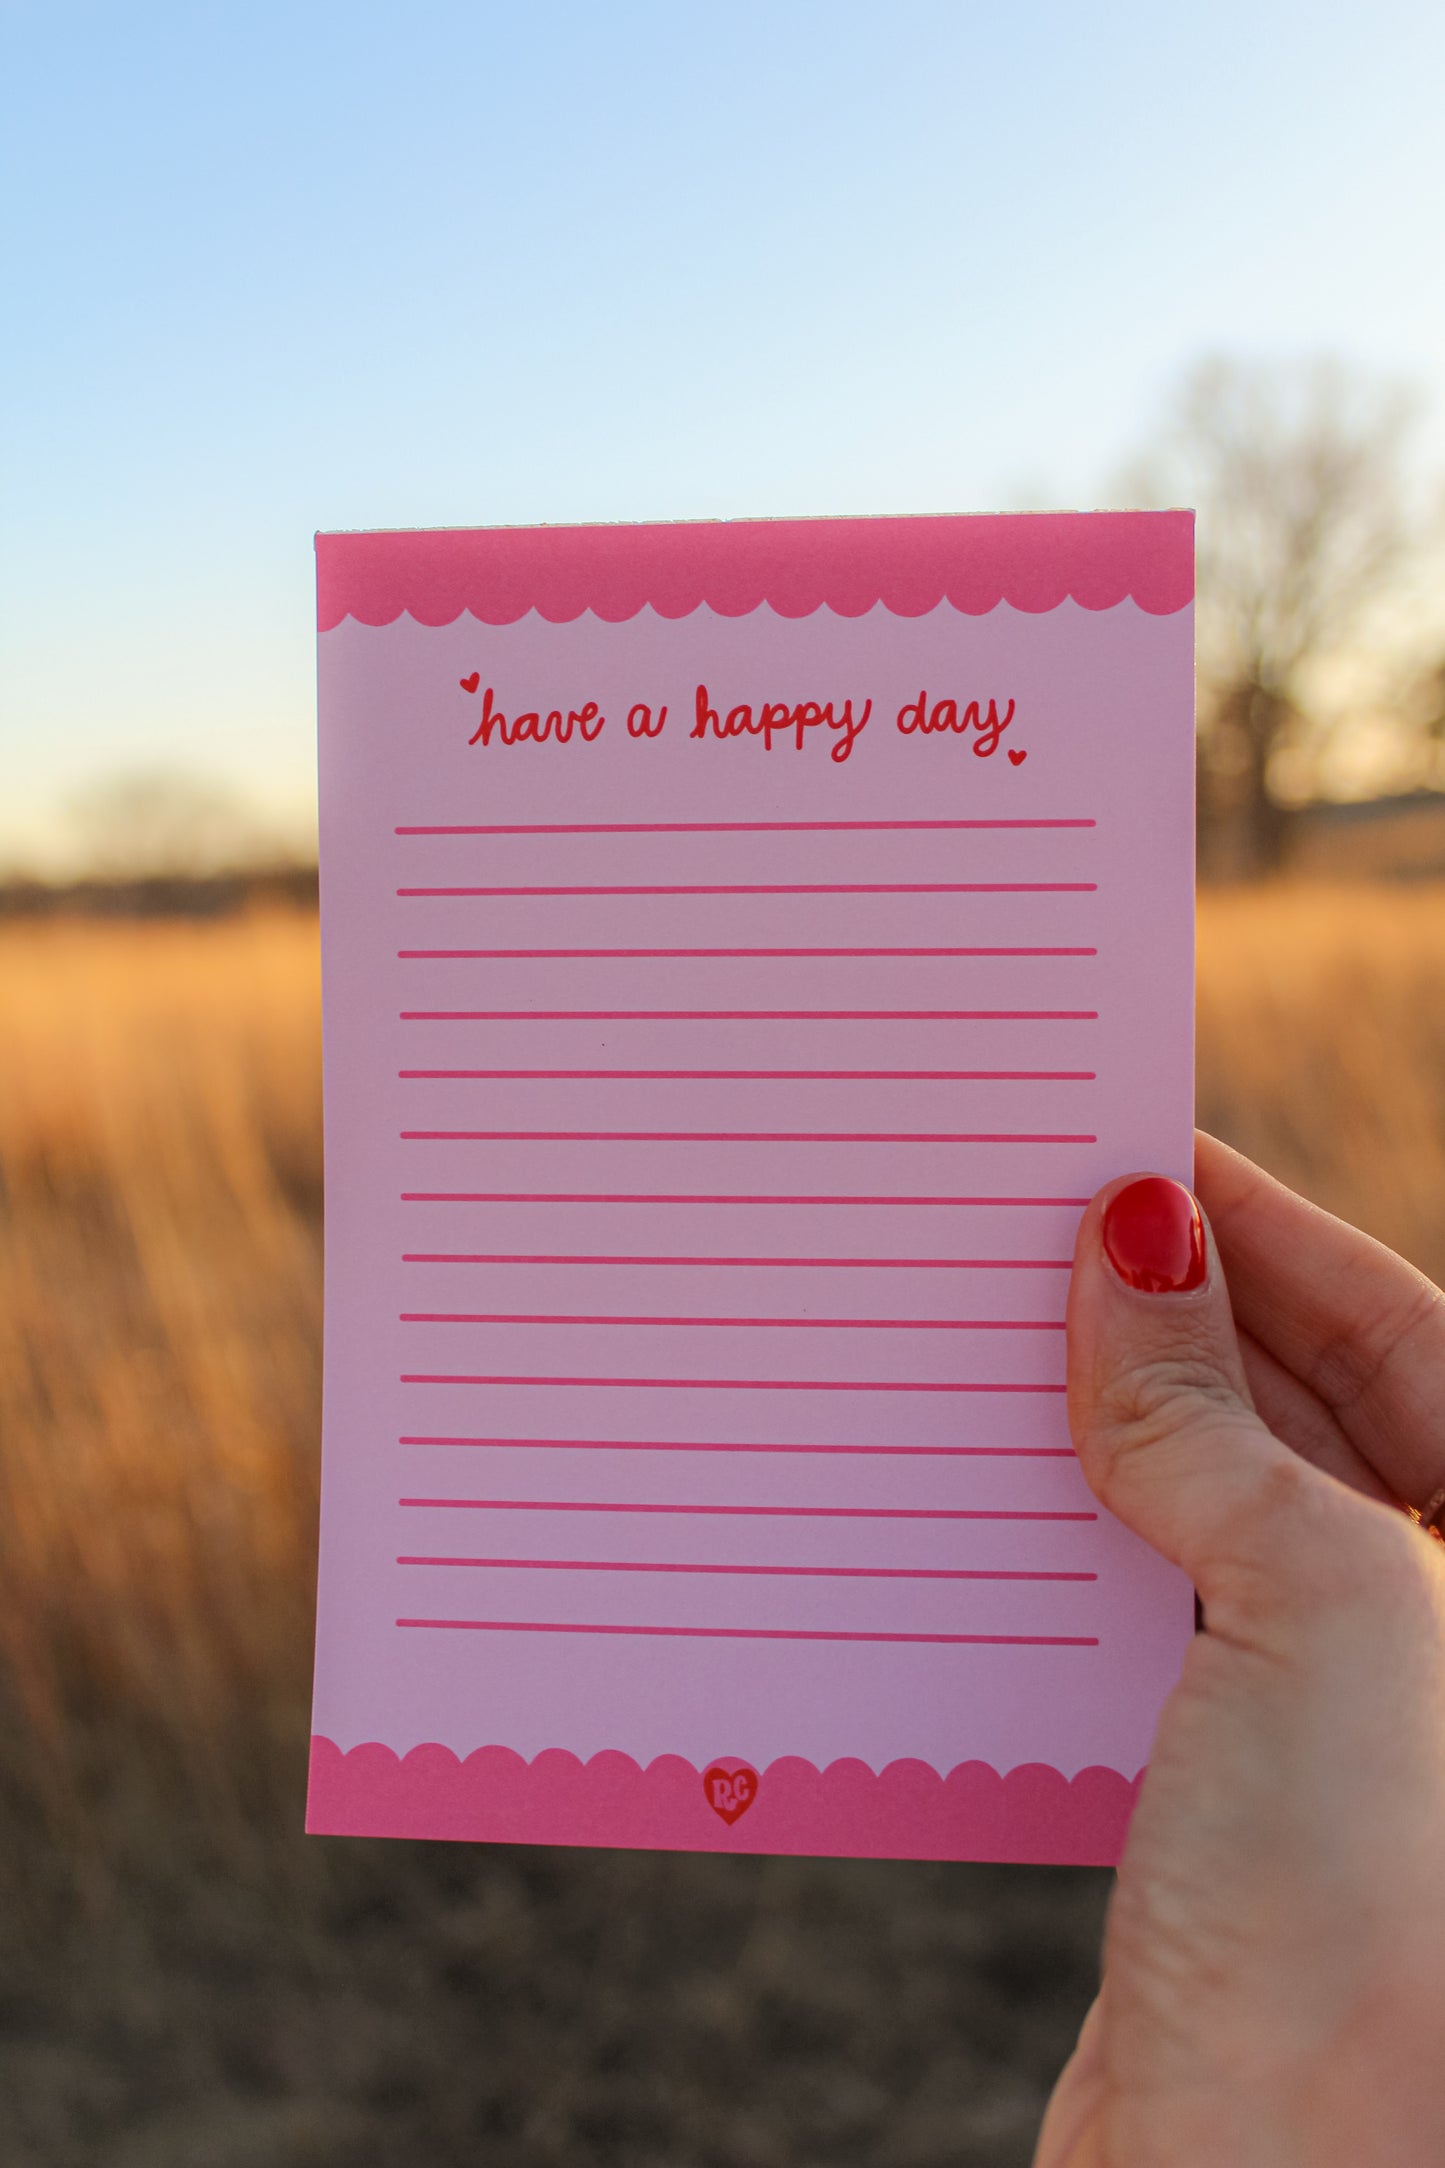 have a happy day
RC